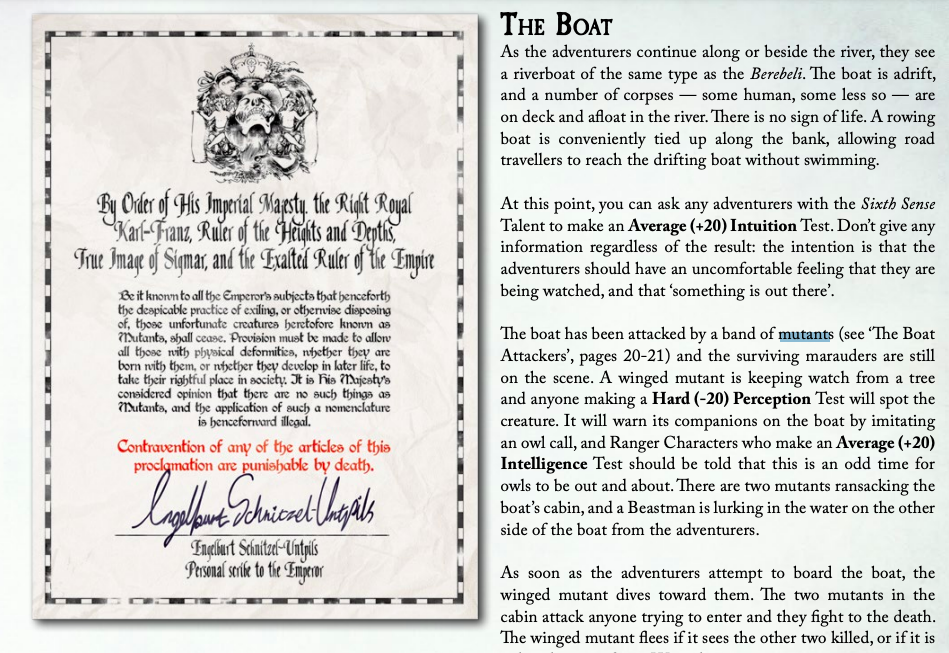 By Order of His Imperial Majesty, the Right Royal
Karl-Franz, Ruler of the Heights and Depths,
True Image of Sigmar, and the Exalted Ruler of the Empire
Be it known to all the Emperor's subjects that henceforth
the despicable practice of exiling, or otherwise disposing
of, those unfortunate creatures heretofore known as
Mutants, shall cease. Provision must be made to allow
all those with physical deformities, whether they are
born with them, or whether they develop in later life, to
take their rightful place in society. It is His Majesty's
considered opinion that there are no such things as
Mutants, and the application of such a nomenclature
is henceforward illegal.
Contravention of any of the articles of this
proclamation are punishable by death.
Engelburt Schnitzel-Untpils
Engelburt Schnitzel-Untpils
Personal scribe to the Emperor
The Boat
As the adventurers continue along or beside the river, they see
a riverboat of the same type as the Berebeli. The boat is adrift,
and a number of corpses — some human, some less so — are
on deck and afloat in the river. There is no sign of life. A rowing
boat is conveniently tied up along the bank, allowing road
travellers to reach the drifting boat without swimming.
At this point, you can ask any adventurers with the Sixth Sense
Talent to make an Average (+20) Intuition Test. Don't give any
information regardless of the result: the intention is that the
adventurers should have an uncomfortable feeling that they are
being watched, and that 'something is out there'.
The boat has been attacked by a band of mutants (see 'The Boat
Attackers', pages 20-21) and the surviving marauders are still
on the scene. A winged mutant is keeping watch from a tree
and anyone making a Hard (-20) Perception Test will spot the
creature. It will warn its companions on the boat by imitating
an owl call, and Ranger Characters who make an Average (+20)
Intelligence Test should be told that this is an odd time for
owls to be out and about. There are two mutants ransacking the
boat's cabin, and a Beastman is lurking in the water on the other
side of the boat from the adventurers.
As soon as the adventurers attempt to board the boat, the
winged mutant dives toward them. The two mutants in the
cabin attack anyone trying to enter and they fight to the death.
The winged mutant flees if it sees the other two killed, or if it is